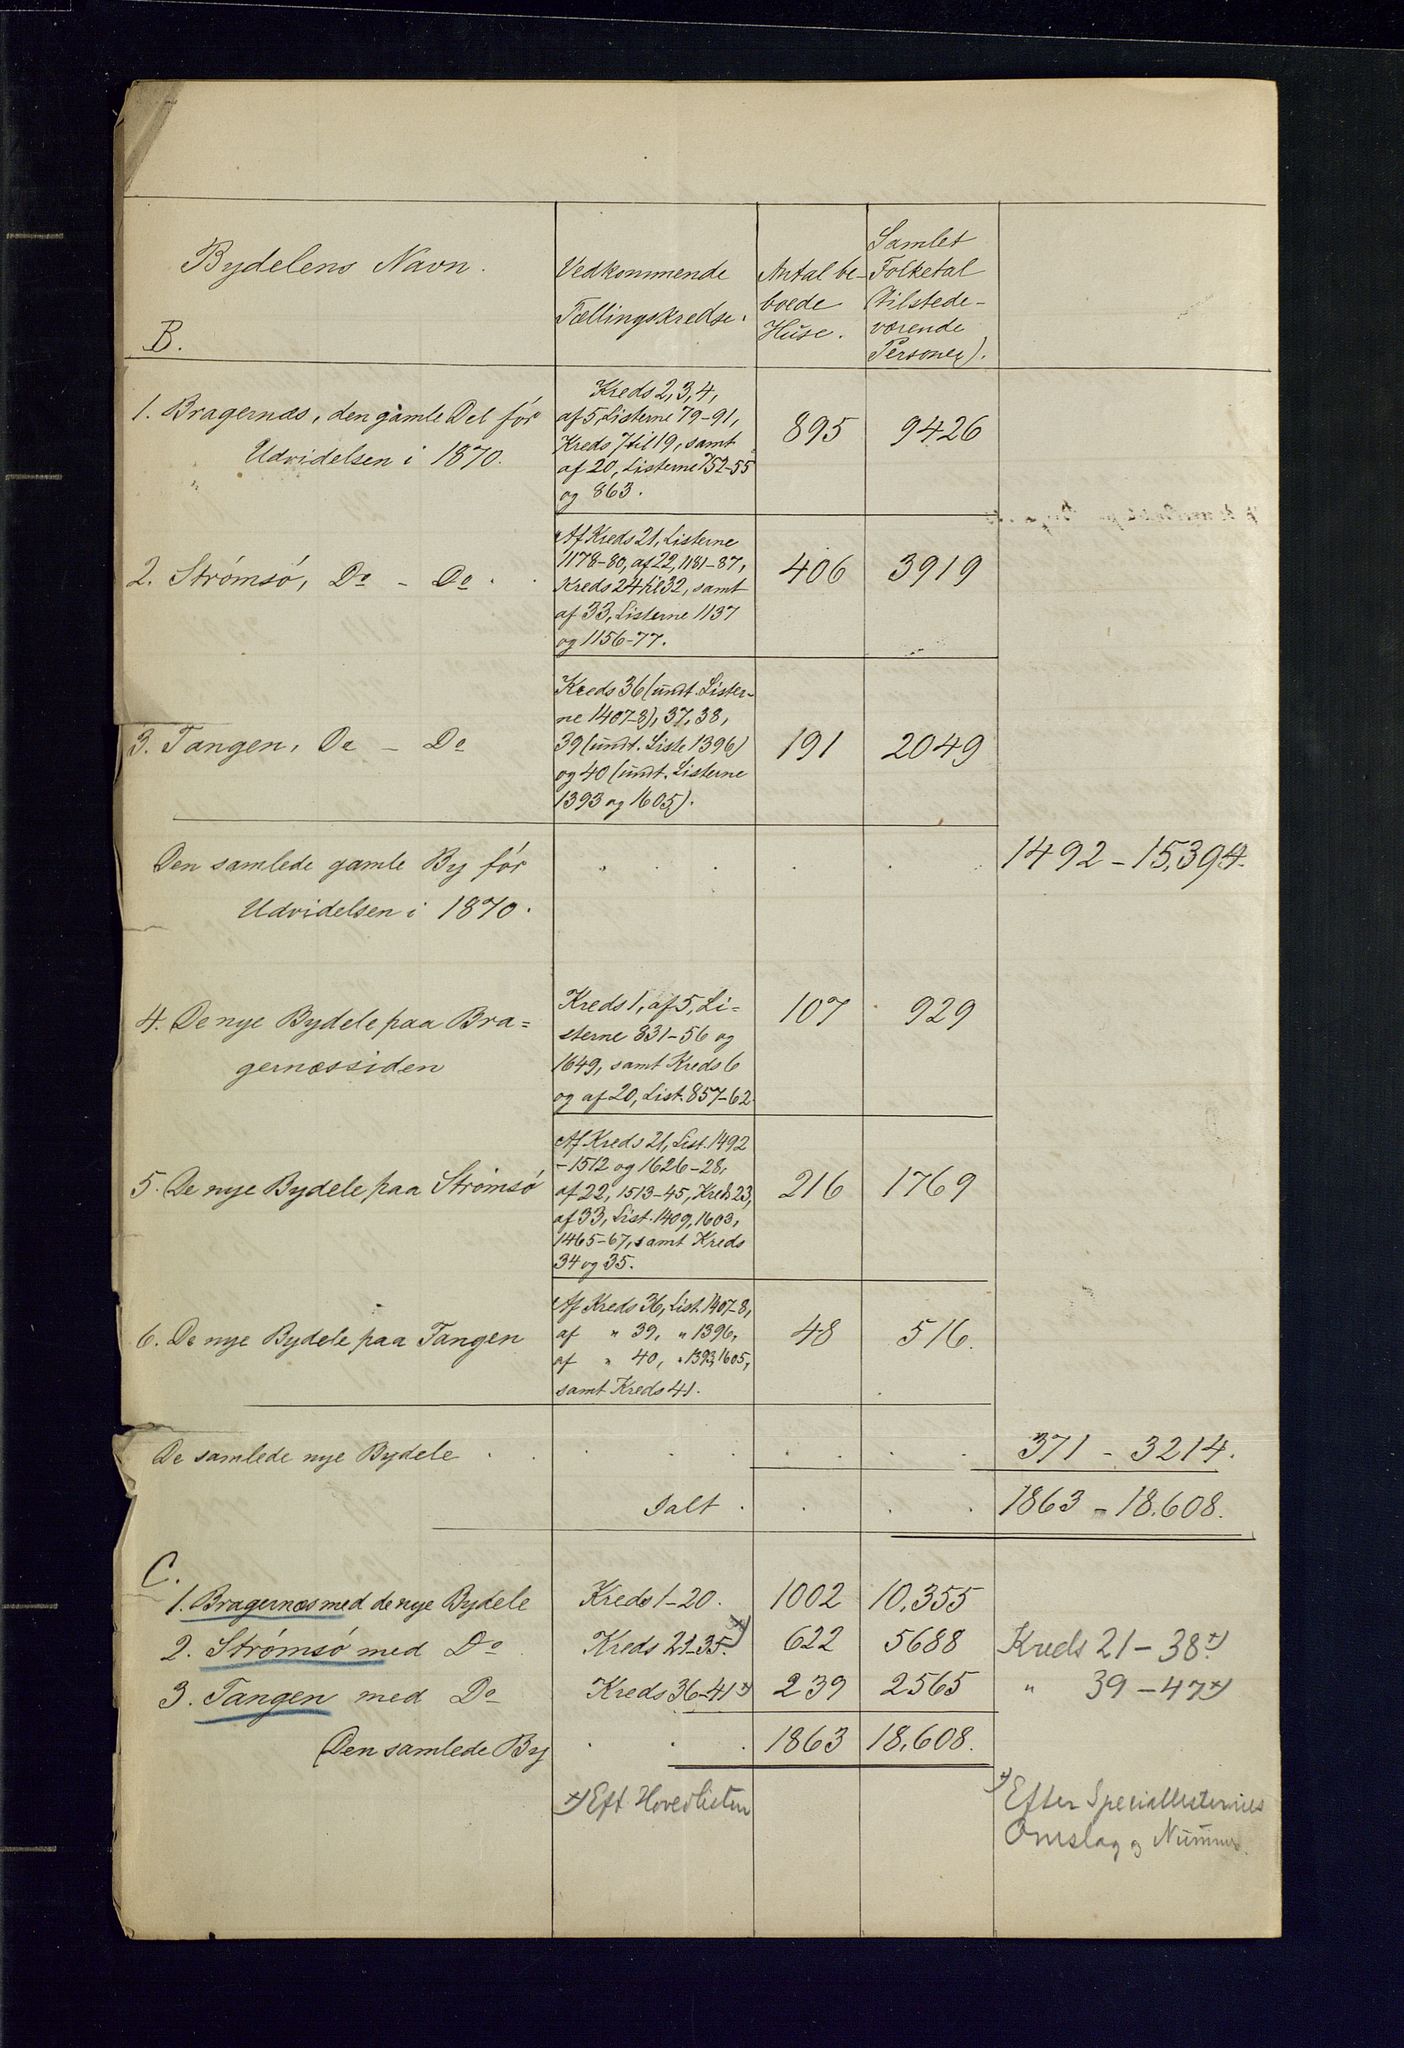 Bydelens Navn.
B.
Vedkommende
Tællingskredse.
Antal be-
boede
Huse.
Samlet
Folketal
(tilstede-
værende
Personer).
1. Bragernæs, den gamle Del før
Udvidelsen i 1870.
Kreds 2, 3, 4,
af 5, Listerne 79-91,
Kreds 7 til 19, samt
af 20, Listerne 752-55
og 863.
895
9426
2. Strømsø, Do - Do
Af Kreds 21, Listerne
1178-80, af 22, 1181-87,
Kreds 24 til 32, samt
af 33, Listerne 1137
og 1156-77.
406
3919
3. Tangen, Do - Do
Kreds 36 (undt. Lister-
ne 1407-8), 37, 38,
39 (undt. Liste 1396)
og 40 (undt. Listerne
1393 og 1605).
191
2049
Den samlede gamle By før
Udvidelsen i 1870.
1492 - 15,394.
4. De nye Bydele paa Bra=
gernæssiden
Kreds 1, af 5, Li-
sterne 831-56 og
1649, samt Kreds 6
og af 20, List. 857-62
107
929
5. De nye Bydele paa Strømsø
Af Kreds 21, List. 1492
-1512 og 1626-28,
af 22, 1513-45, Kreds 23,
af 33, List. 1409, 1603,
1465-67, samt Kreds
34 og 35.
216
1769
6. De nye Bydele paa Tangen
Af Kreds 36, List. 1407-8,
af " 39, " 1396,
af " 40, " 1393, 1605,
samt Kreds 41.
48
516.
De samlede nye Bydele
371 - 3214.
Ialt
1863 - 18.608.
C.
1. Bragernæs med de nye Bydele Kreds 1-20. 1002 10.355
2. Strømsø med Do Kreds 21-35. x) 622 5688 Kreds 21-38 x)
3. Tangen med Do Kreds 36-41 x) 239 2565 " 39-47 x)
Den samlede By 1863 18.608.
x) Eft. Hovedlisten
x) Efter Speciallisternes
Omslag og Nummer.